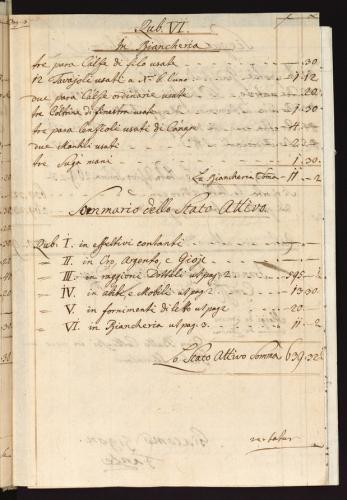 Rub. VI.
In Biancheria
tre para Calse di filo usate - 1.30
12 Tavajoli usati a . 1.12
due para Calse ordinarie usate - .20
tre Coltrina di finestra usate - 1.30
tre para usati di - 4.
due Mantili usati
tre Suga mani - 1.30
La Biancheria Soma - 11 - 2
Sommario dello Stato Attivo.
Rub. I. in effettivi contanti
" II. in Oro, Argento, e Gioje
" III. in raggioni Dottali ut pag. 2.
" IV. in abiti e Mobili ut pag. 2. 13.30
" V. in fornimenti di letto ut pag. 2 20.
" VI. in Biancheria ut pag. 3. 11 - 2
Lo Stato Attivo Somma 639.32